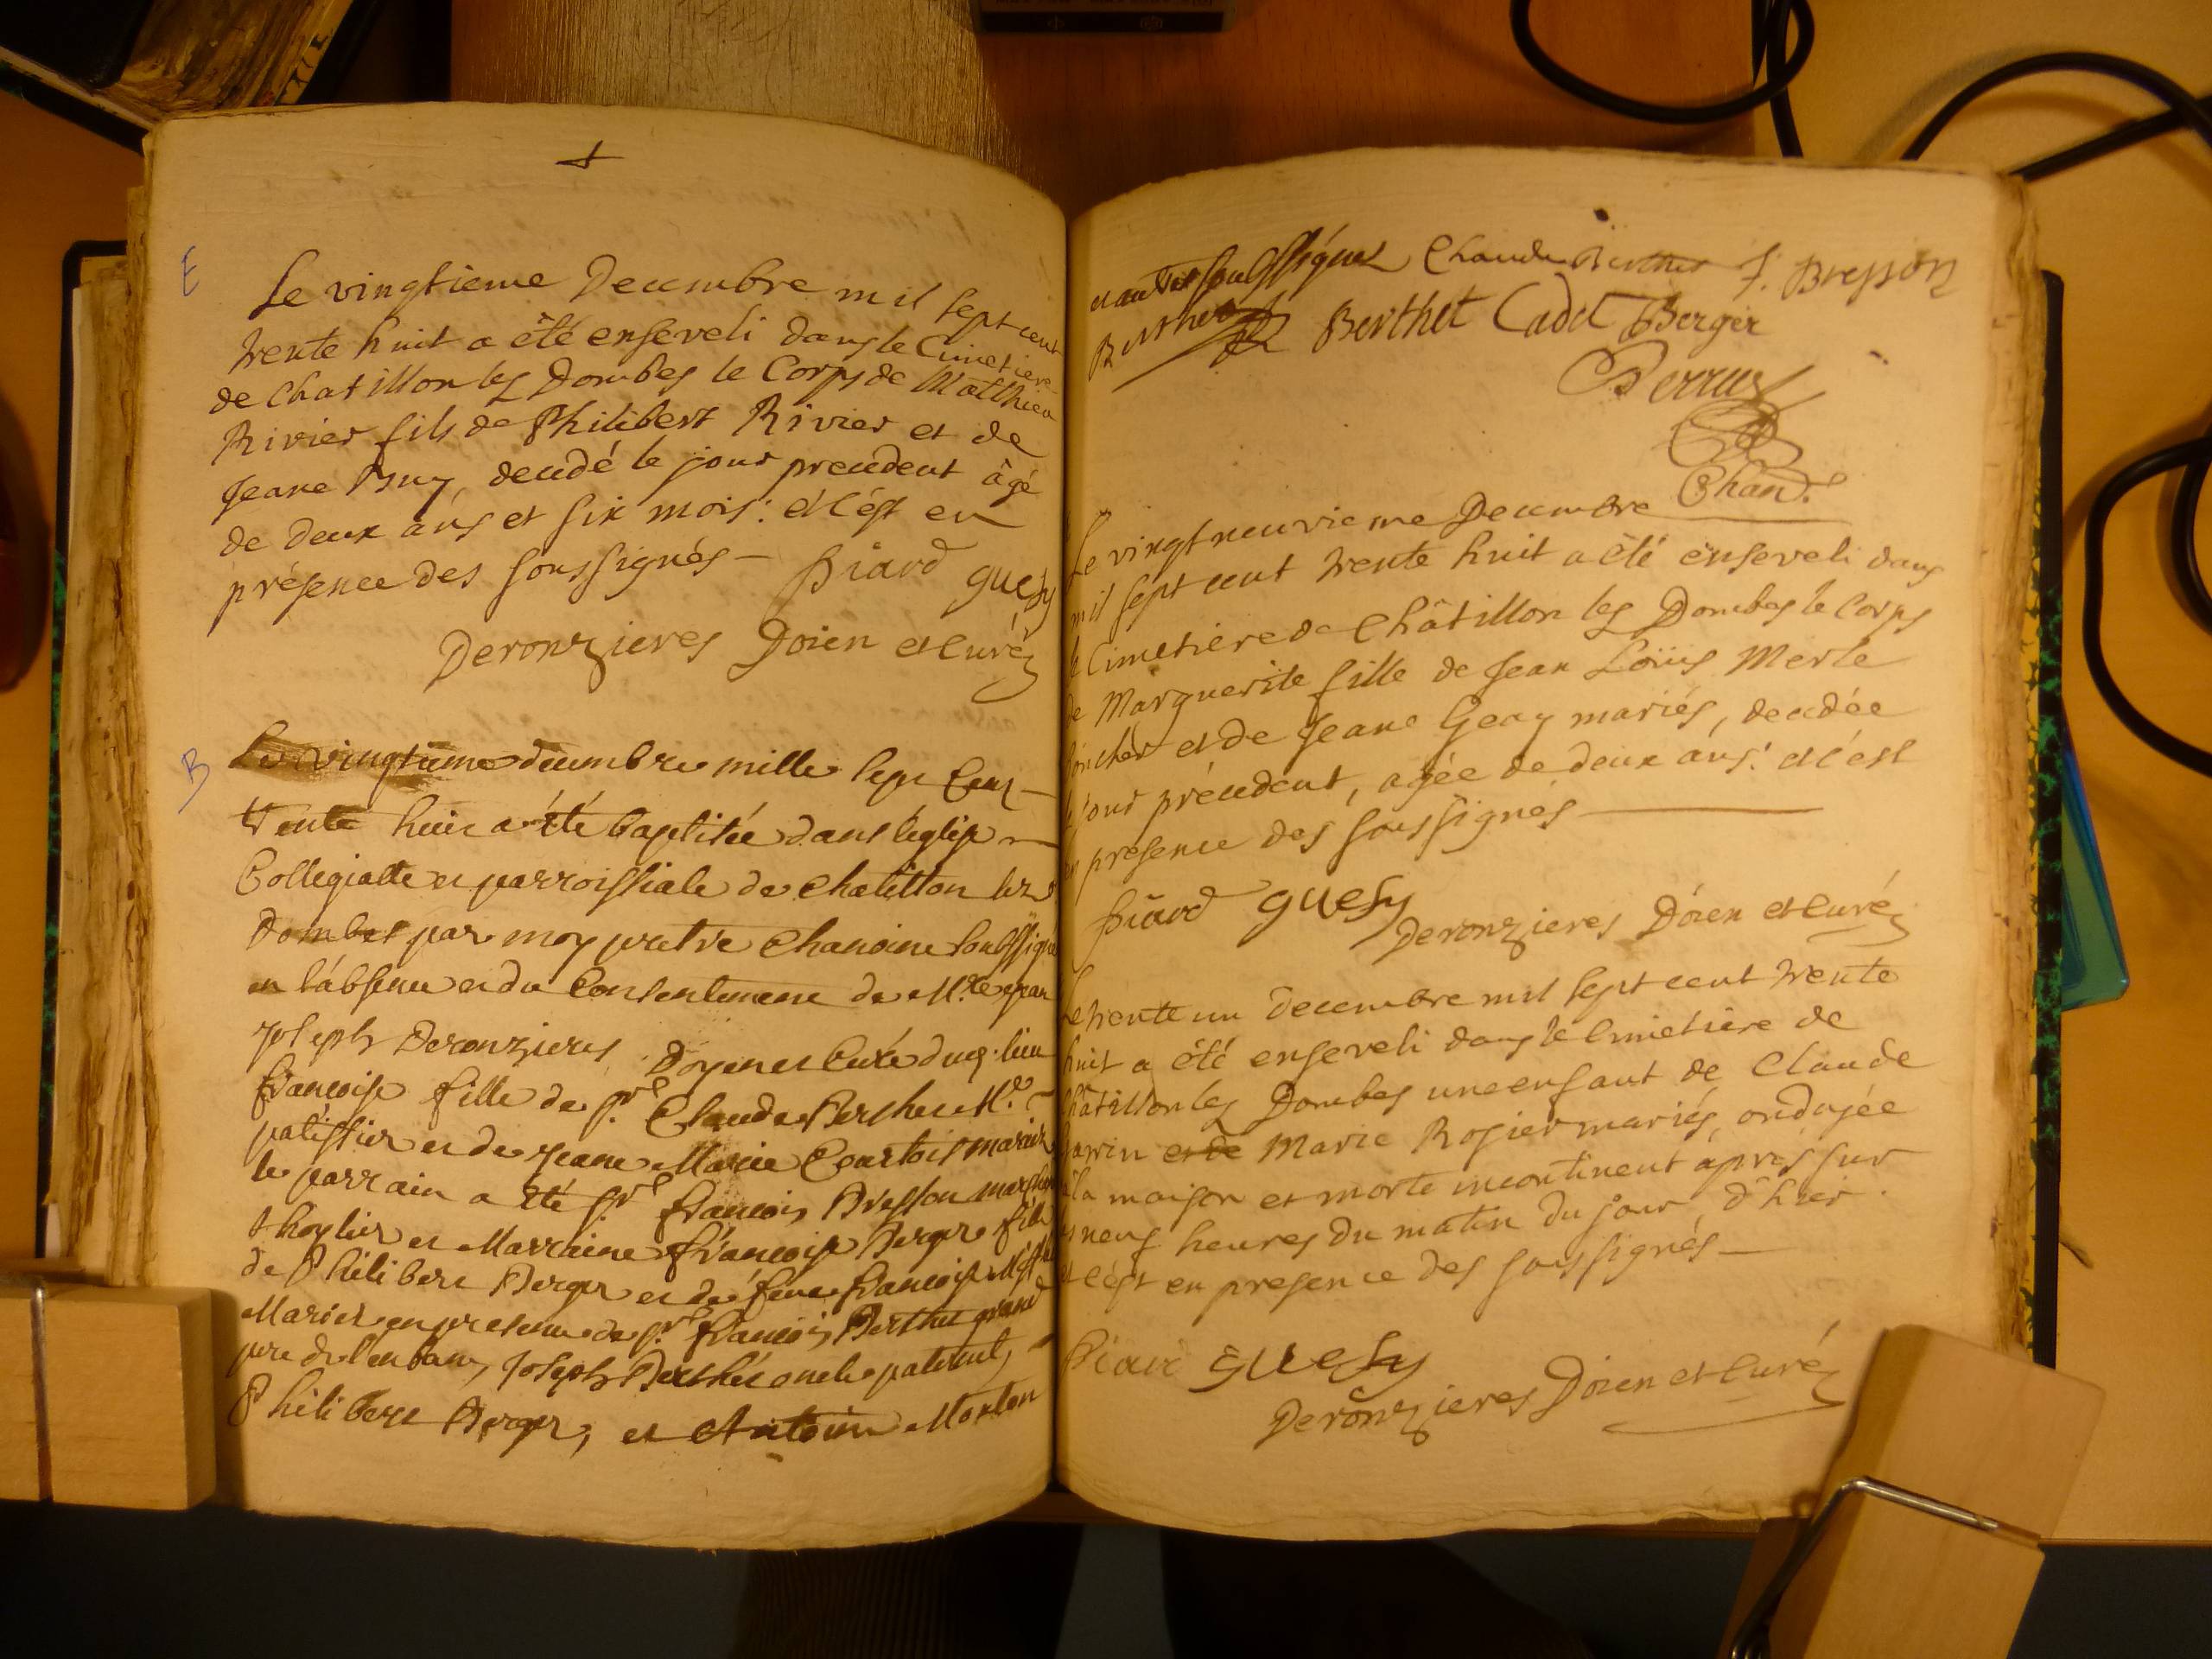 E
Le vingtieme Decembre mil sept cent
trente huit a êté enseveli dans le Cimetiere
de Chatillon les Dombes le Corps de Matthieu
Rivier fils de Philibert Rivier et de
Jeane Buy, decedé le jour precedent âgé
de deux ans et six mois: et c'est en
présence des soussignés — Biard guesy
Deronzieres Doien et curé
B
Le vingtieme decembre mille sept Cens
trente huit a été baptisée dans l'eglise
Collegiatte et parroissiale de Chatillon lez
Dombes par moy pretre Chanoine soussigné
en l'absence et du Consentement de Mre jean
Joseph Deronzieres Doyen et Curé dud. lieu
francoise fille de sr Claude Berthet Md
patissier et de jeane Marie Courtois mariez
le parrain a été sr francois Bresson marchand
et Marraine francoise Berger fille
de Philibert Berger et de feue francoise
Mariez en presence de sr francois Berthet grand
pere de l'enfant, Joseph Berthet oncle paternel,
Philibert Berger, et Antoine Morton
et autres soussignez Claude Berthet F. Bresson
Berthet Berthet Cadet Berger
Perruz
Chan.e
Le vingt neuvieme Decembre
mil sept cent trente huit a êté enseveli dans
le Cimetiere de Châtillon les Dombes le Corps
de Marguerite fille de Jean Loüis Merle
et de Jeane Geay mariés, decedée
le jour précedent, agée de deux ans: et c'est
en presence des soussignés
Biard guesy
Deronzieres Doien et curé
Le trente un Decembre mil sept cent trente
huit a été enseveli dans le Cimetiere de
Châtillon les Dombes une enfant de Claude
et de Marie Rosier mariés, ondoyée
à la maison et morte incontinent aprés sur
les neuf heures du matin du jour d'hier
et c'est en presence des soussignés —
Biard guesy
Deronzieres Doien et curé